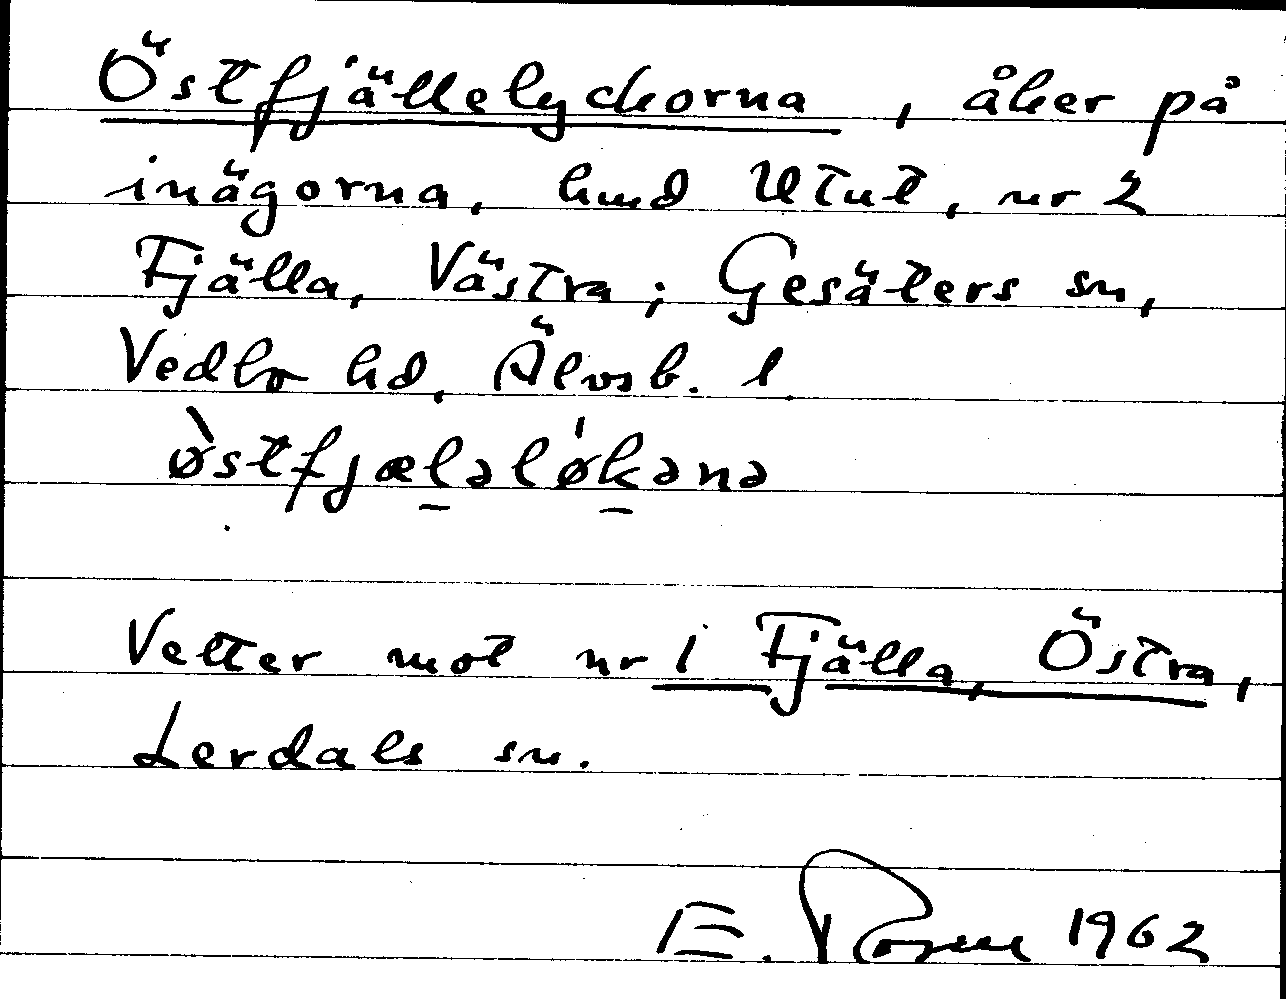 Östfjällelyckorna, åker på
inägorna, hmd Utut, nr 2
Fjälla, Västra; Gesäters sn,
Vedbo hd, Älvsb. l
østfjælaløkana
Vetter mot nr 1 Fjälla, Östra,
Lerdals sn.
E. 1962